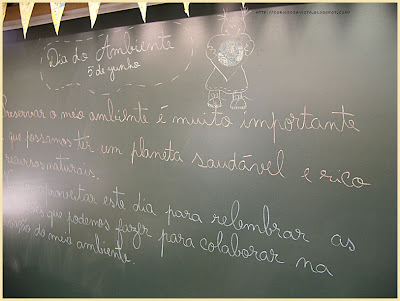 Dia do Ambiente
5 de junho
Preservar o meio ambiente é muito importante
que possamos ter um planeta saudável e rico
recursos naturais.
aproveitar este dia para relembrar as
que podemos fazer para colaborar na
do meio ambiente.